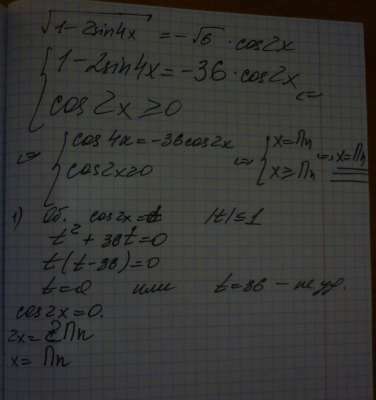 √(1-2sin4x) = -√6 · cos2x
{ 1-2sin4x = -36·cos2x <=>
cos2x ≥ 0
<=> { cos4x = -36cos2x <=> { x=Пn <=> x=Пn
cos2x≥0 x≥Пn
1) Об. cos2x=t |t|≤1
t² + 36t=0
t(t-36)=0
t=0 или t=36 - не уд.
cos2x=0.
2x= 2Пn
x= Пn